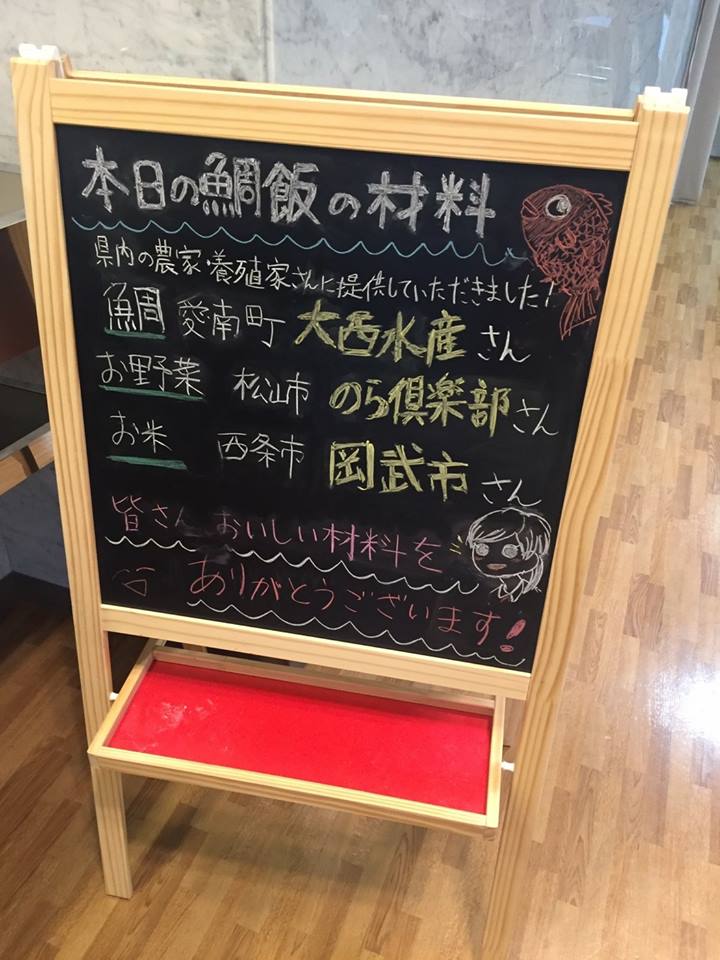 本日の鯛飯の材料
県内の農家・養殖家さんに提供していただきました！
鯛 愛南町 大西水産さん
お野菜 松山市 のら倶楽部さん
お米 西条市 岡武市さん
皆さん おいしい材料を
ありがとうございます！